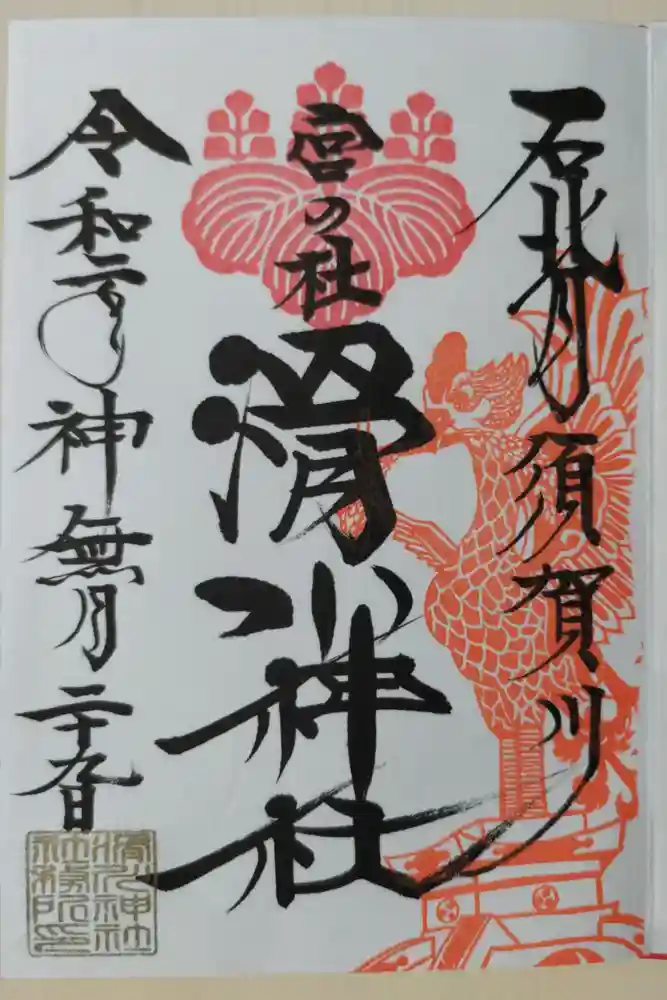 石背 須賀川
宮の杜
滑川神社
令和二年神無月二十九日
滑川神社
社務所印